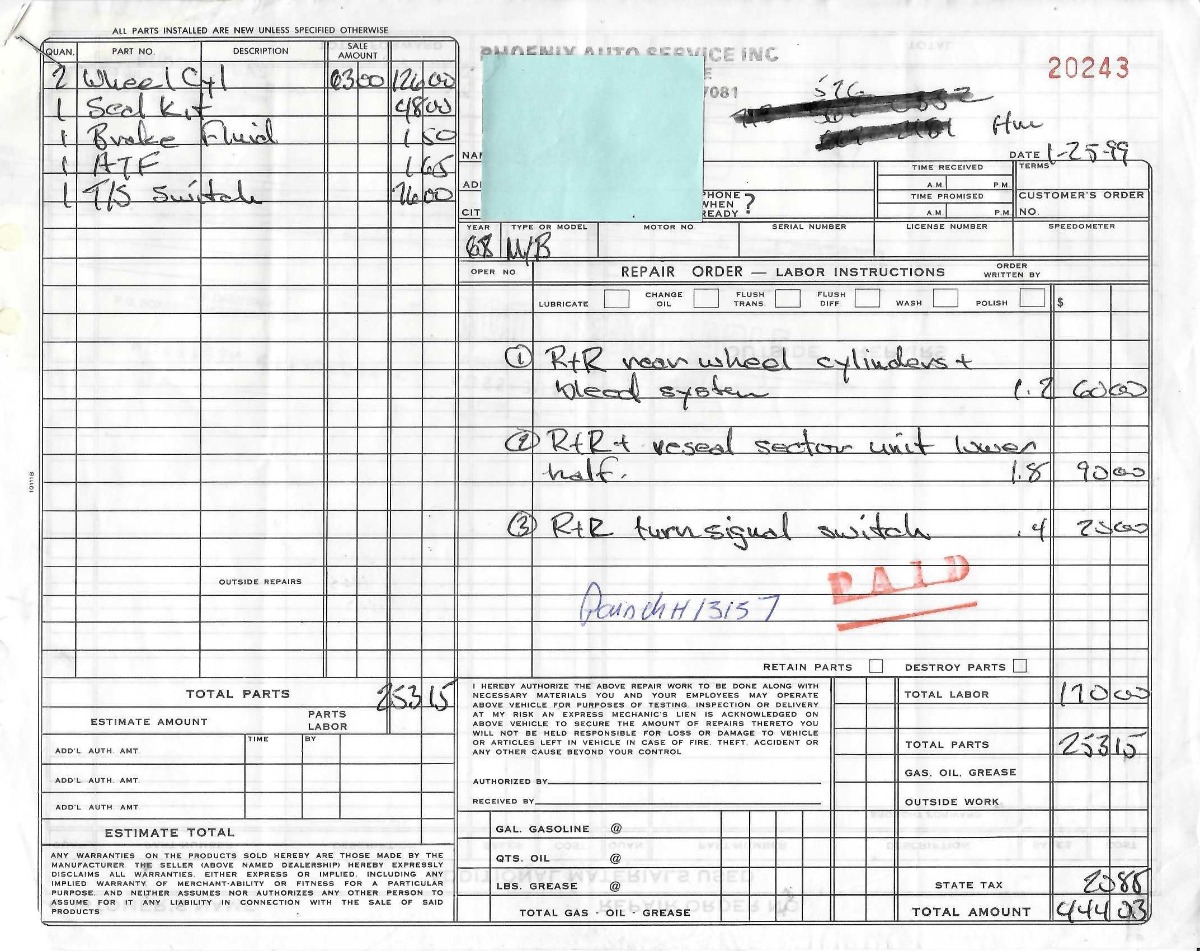 ALL PARTS INSTALLED ARE NEW UNLESS SPECIFIED OTHERWISE
QUAN. PART NO. DESCRIPTION SALE AMOUNT
2 Wheel Cyl 6300 12600
1 Seal Kit 4800
1 Brake Fluid 1 50
1 ATF 1 65
1 T/S Switch 7600
OUTSIDE REPAIRS
TOTAL PARTS 253 15
ESTIMATE AMOUNT PARTS LABOR
TIME BY
ADD'L AUTH. AMT.
ADD'L AUTH. AMT.
ADD'L AUTH. AMT
ESTIMATE TOTAL
ANY WARRANTIES ON THE PRODUCTS SOLD HEREBY ARE THOSE MADE BY THE
MANUFACTURER. THE SELLER (ABOVE NAMED DEALERSHIP) HEREBY EXPRESSLY
DISCLAIMS ALL WARRANTIES, EITHER EXPRESS OR IMPLIED, INCLUDING ANY
IMPLIED WARRANTY OF MERCHANT-ABILITY OR FITNESS FOR A PARTICULAR
PURPOSE, AND NEITHER ASSUMES NOR AUTHORIZES ANY OTHER PERSON TO
ASSUME FOR IT ANY LIABILITY IN CONNECTION WITH THE SALE OF SAID
PRODUCTS
PHOENIX AUTO SERVICE INC
7081
20243
576
Hm
DATE 1-25-99
TIME RECEIVED A.M. P.M. TERMS
TIME PROMISED A.M. P.M. CUSTOMER'S ORDER NO.
PHONE WHEN READY ?
YEAR TYPE OR MODEL MOTOR NO. SERIAL NUMBER LICENSE NUMBER SPEEDOMETER
68 M/B
OPER NO REPAIR ORDER — LABOR INSTRUCTIONS ORDER WRITTEN BY
LUBRICATE CHANGE OIL FLUSH TRANS. FLUSH DIFF. WASH POLISH $
① R+R rear wheel cylinders +
bleed system 1.2 6000
② R+R + reseal sector unit lower
half. 1.8 9000
③ R+R turn signal switch .4 2000
PAID
13157
RETAIN PARTS DESTROY PARTS
I HEREBY AUTHORIZE THE ABOVE REPAIR WORK TO BE DONE ALONG WITH
NECESSARY MATERIALS YOU AND YOUR EMPLOYEES MAY OPERATE
ABOVE VEHICLE FOR PURPOSES OF TESTING, INSPECTION OR DELIVERY
AT MY RISK AN EXPRESS MECHANIC'S LIEN IS ACKNOWLEDGED ON
ABOVE VEHICLE TO SECURE THE AMOUNT OF REPAIRS THERETO YOU
WILL NOT BE HELD RESPONSIBLE FOR LOSS OR DAMAGE TO VEHICLE
OR ARTICLES LEFT IN VEHICLE IN CASE OF FIRE, THEFT, ACCIDENT OR
ANY OTHER CAUSE BEYOND YOUR CONTROL
AUTHORIZED BY
RECEIVED BY
GAL. GASOLINE @
QTS. OIL @
LBS. GREASE @
TOTAL GAS - OIL - GREASE
TOTAL LABOR 17000
TOTAL PARTS 25315
GAS, OIL, GREASE
OUTSIDE WORK
STATE TAX 2088
TOTAL AMOUNT 444 03